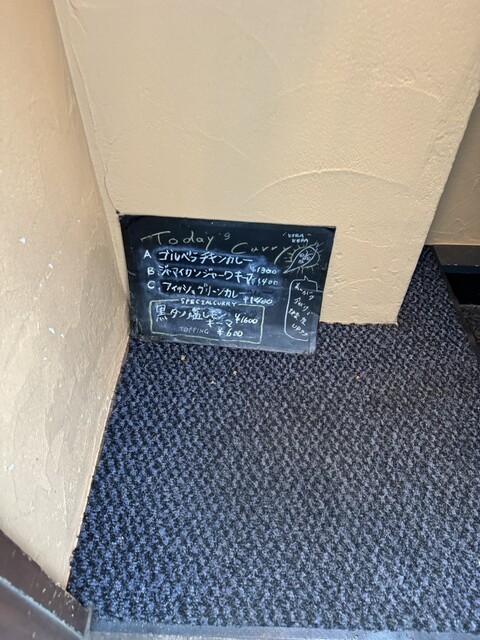 Today's Curry
A ゴルベラチキンカレー
¥1300
B ジャマイカンジャークキーマ ¥1400
C フィッシュグリーンカレー ¥1400
SPECIALCURRY
黒タン塩レモンキーマ ¥1600
TOPPING ¥600